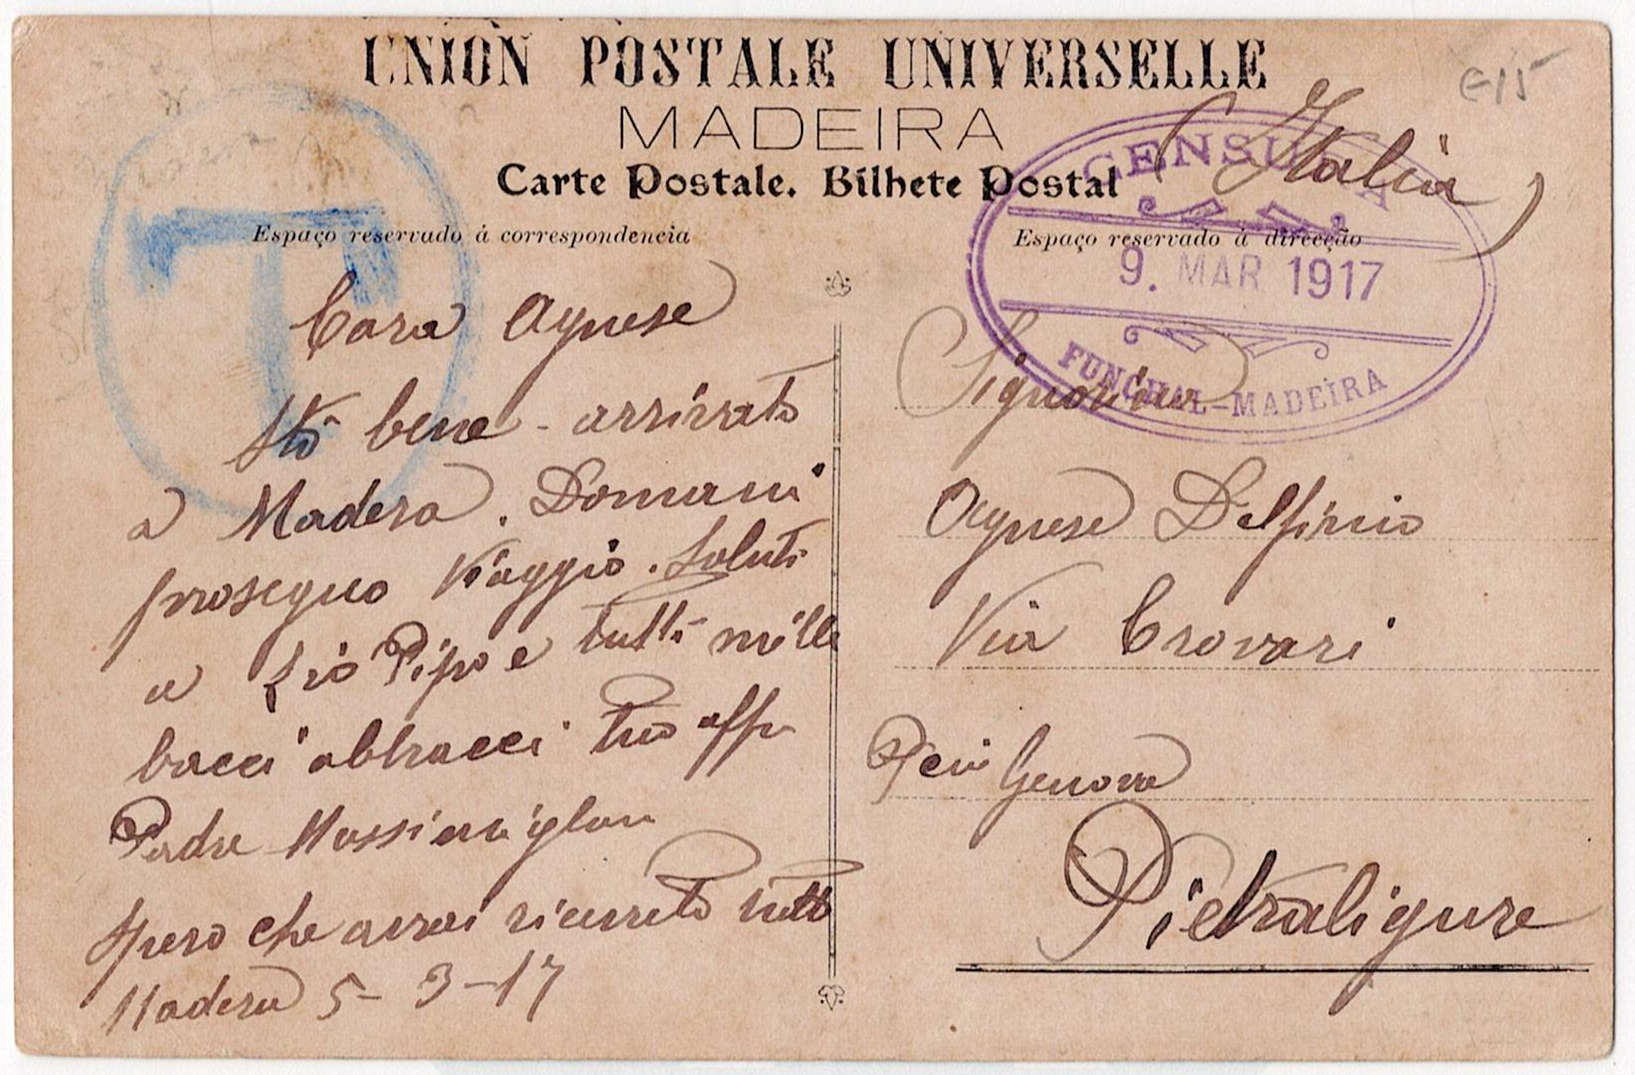 UNION POSTALE UNIVERSELLE
MADEIRA
Carte Postale. Bilhete Postal
Espaço reservado á correspondencia
Espaço reservado á direcção
€15
T
CENSURA
9. MAR 1917
FUNCHAL-MADEIRA
Cara Agnese
Stò bene - arrivato
a Madera. Domani
proseguo Viaggio. Saluti
a Zio Pipo e tutti mille
bacci abbracci tuo affo
Padre
spero che avrai ricevuto tutto
Madera 5-3-17
(Italia)
Signorina
Agnese Delfino
Via Crovari
Genova
Pietraligure